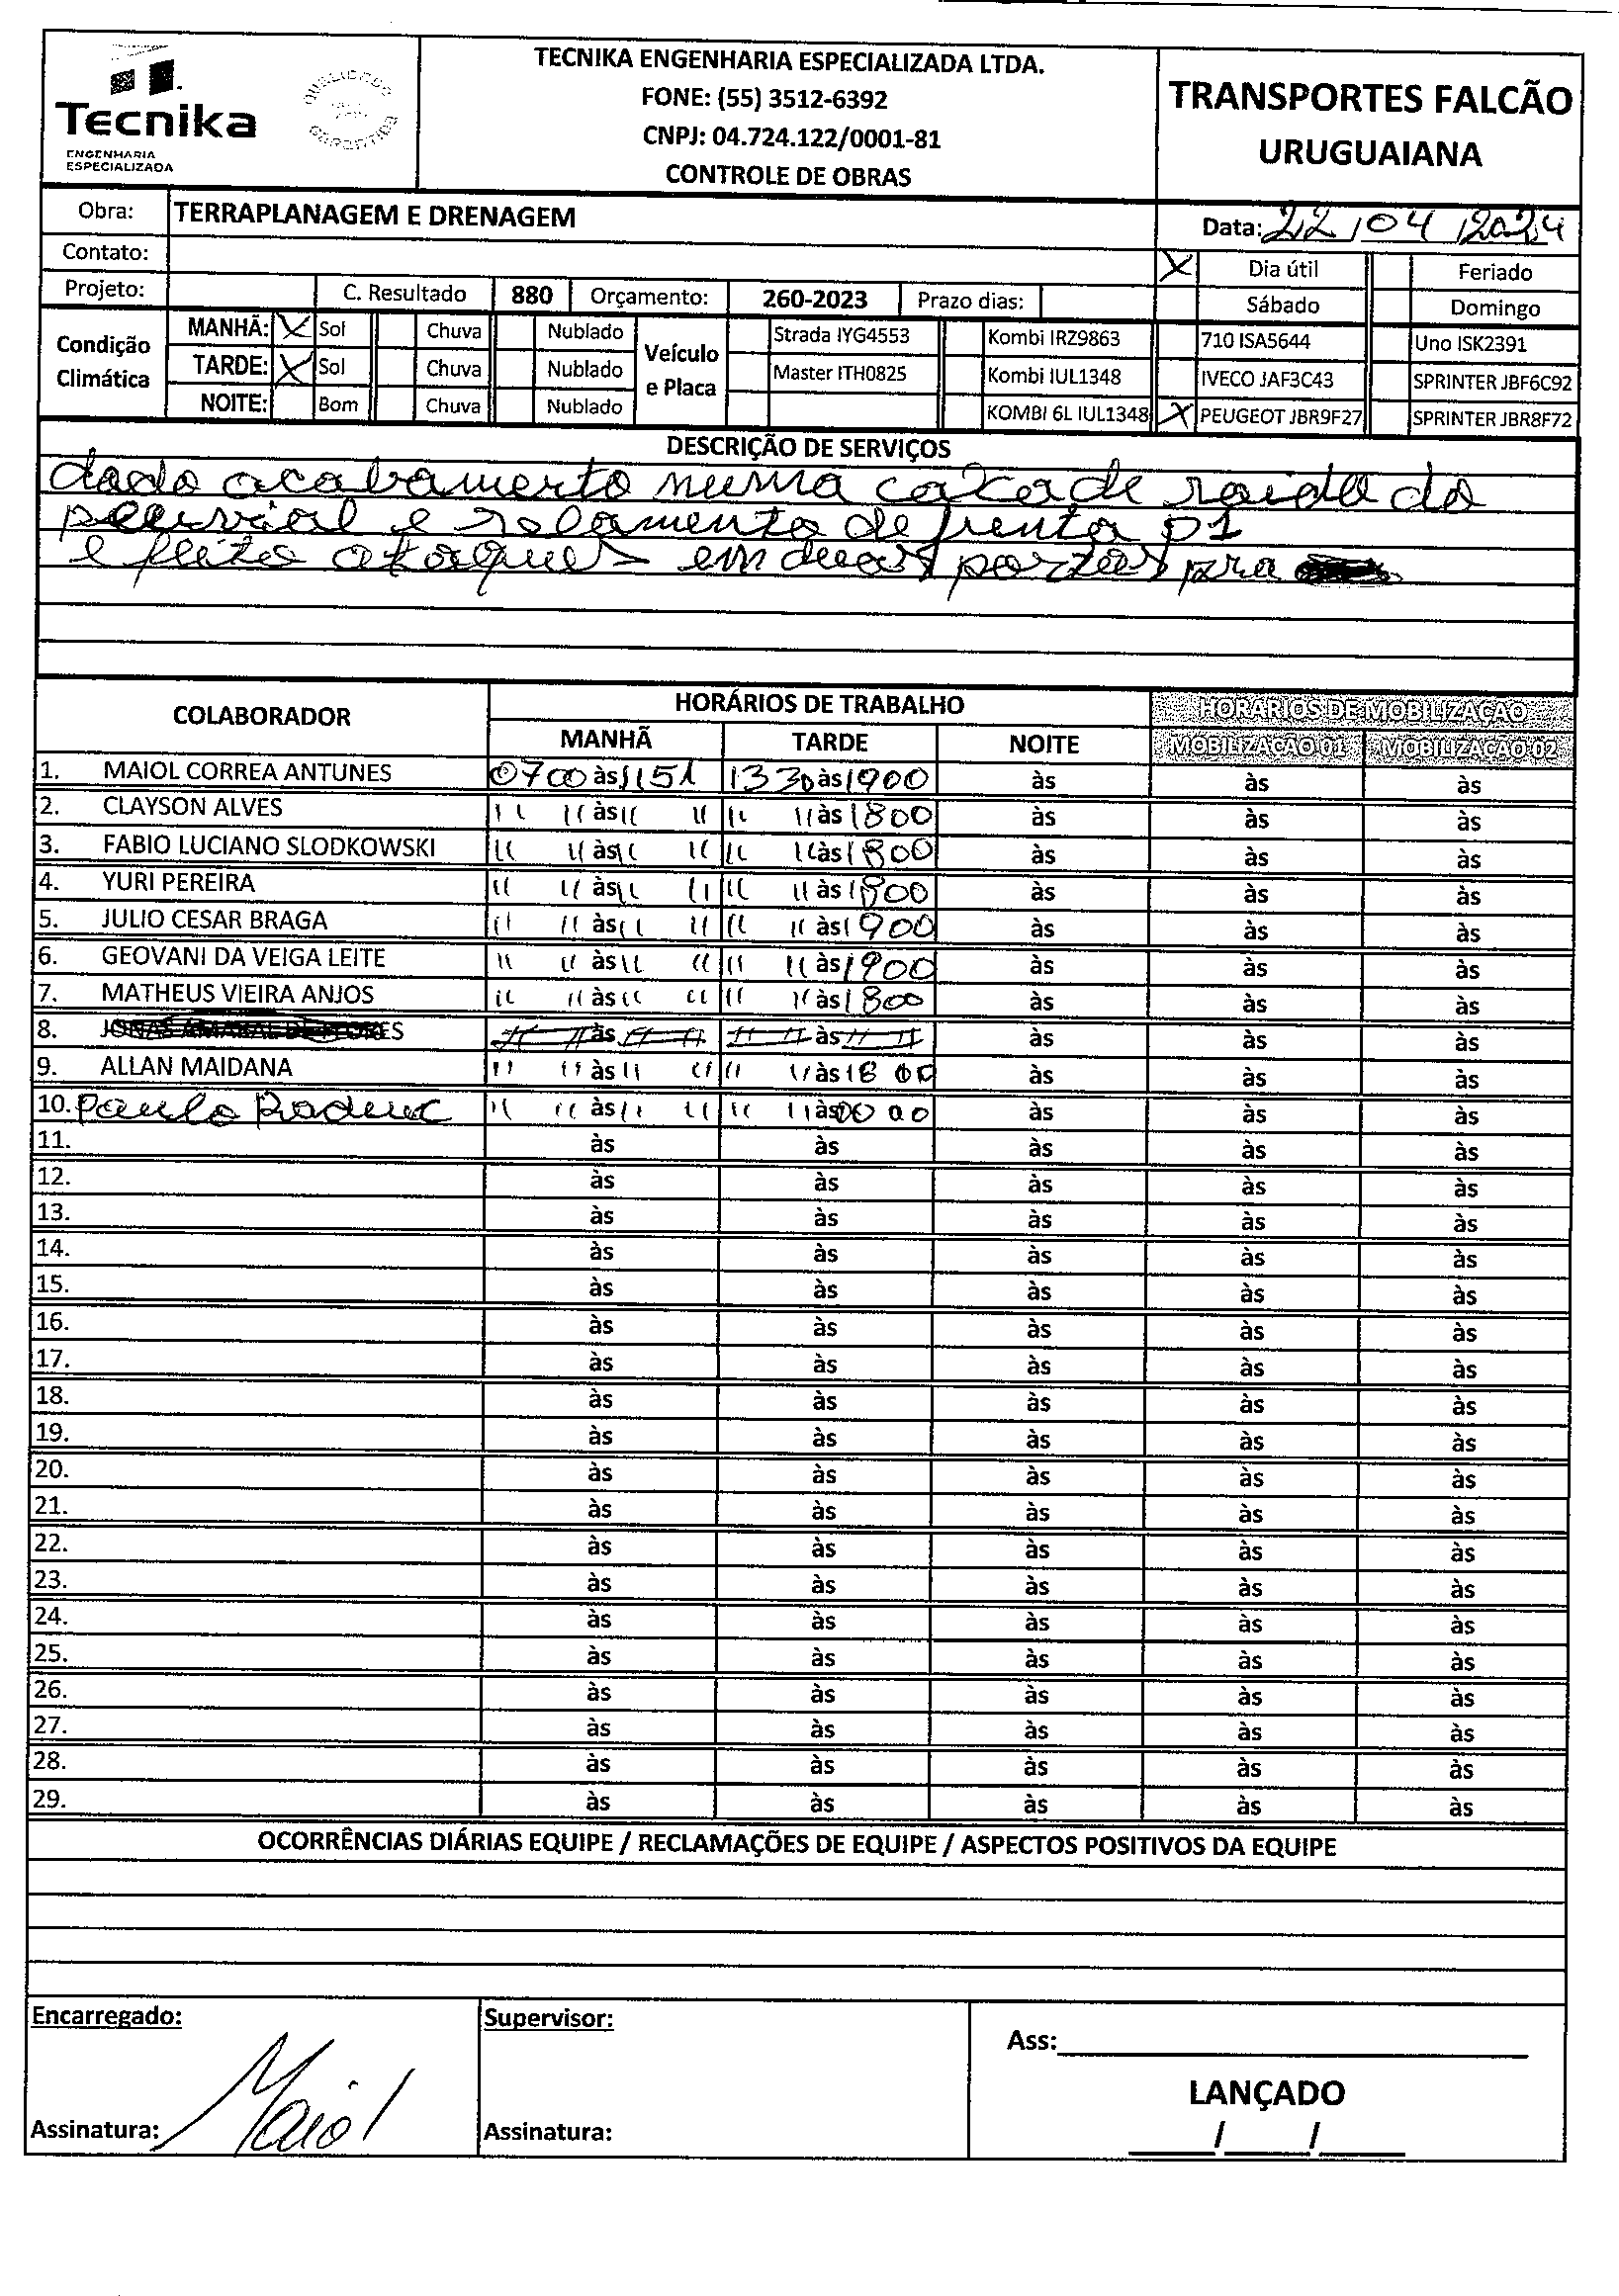 Tecnika
ENGENHARIA
ESPECIALIZADA
TECNIKA ENGENHARIA ESPECIALIZADA LTDA.
FONE: (55) 3512-6392
CNPJ: 04.724.122/0001-81
CONTROLE DE OBRAS
TRANSPORTES FALCÃO
URUGUAIANA
Obra: TERRAPLANAGEM E DRENAGEM
Data: 22/04/2024
Contato:
X Dia útil Feriado
Projeto: C. Resultado 880 Orçamento: 260-2023 Prazo dias: Sábado Domingo
Condição Climática
MANHÃ: X Sol Chuva Nublado
TARDE: X Sol Chuva Nublado
NOITE: Bom Chuva Nublado
Veículo e Placa
Strada IYG4553 Kombi IRZ9863 710 ISA5644 Uno ISK2391
Master ITH0825 Kombi IUL1348 IVECO JAF3C43 SPRINTER JBF6C92
KOMBI 6L IUL1348 X PEUGEOT JBR9F27 SPRINTER JBR8F72
DESCRIÇÃO DE SERVIÇOS
dado acabamento numa caixa de saida do
pluvial e de frenta 01
e feito ataque em duas pra
COLABORADOR HORÁRIOS DE TRABALHO HORÁRIOS DE MOBILIZAÇÃO
MANHÃ TARDE NOITE MOBILIZAÇÃO 01 MOBILIZAÇÃO 02
1. MAIOL CORREA ANTUNES 0700 às 1151 1330 às 1900 às às às
2. CLAYSON ALVES " " às " " " " às 1800 às às às
3. FABIO LUCIANO SLODKOWSKI " " às " " " " às 1800 às às às
4. YURI PEREIRA " " às " " " " às 1800 às às às
5. JULIO CESAR BRAGA " " às " " " " às 1900 às às às
6. GEOVANI DA VEIGA LEITE " " às " " " " às 1900 às às às
7. MATHEUS VIEIRA ANJOS " " às " " " " às 1800 às às às
8. às às às às às
9. ALLAN MAIDANA " " às " " " " às 1800 às às às
10. Paulo " " às " " " " às 0000 às às às
11. às às às às às
12. às às às às às
13. às às às às às
14. às às às às às
15. às às às às às
16. às às às às às
17. às às às às às
18. às às às às às
19. às às às às às
20. às às às às às
21. às às às às às
22. às às às às às
23. às às às às às
24. às às às às às
25. às às às às às
26. às às às às às
27. às às às às às
28. às às às às às
29. às às às às às
OCORRÊNCIAS DIÁRIAS EQUIPE / RECLAMAÇÕES DE EQUIPE / ASPECTOS POSITIVOS DA EQUIPE
Encarregado: Supervisor:
Ass:
LANÇADO
Assinatura: Maiol Assinatura:
/ /